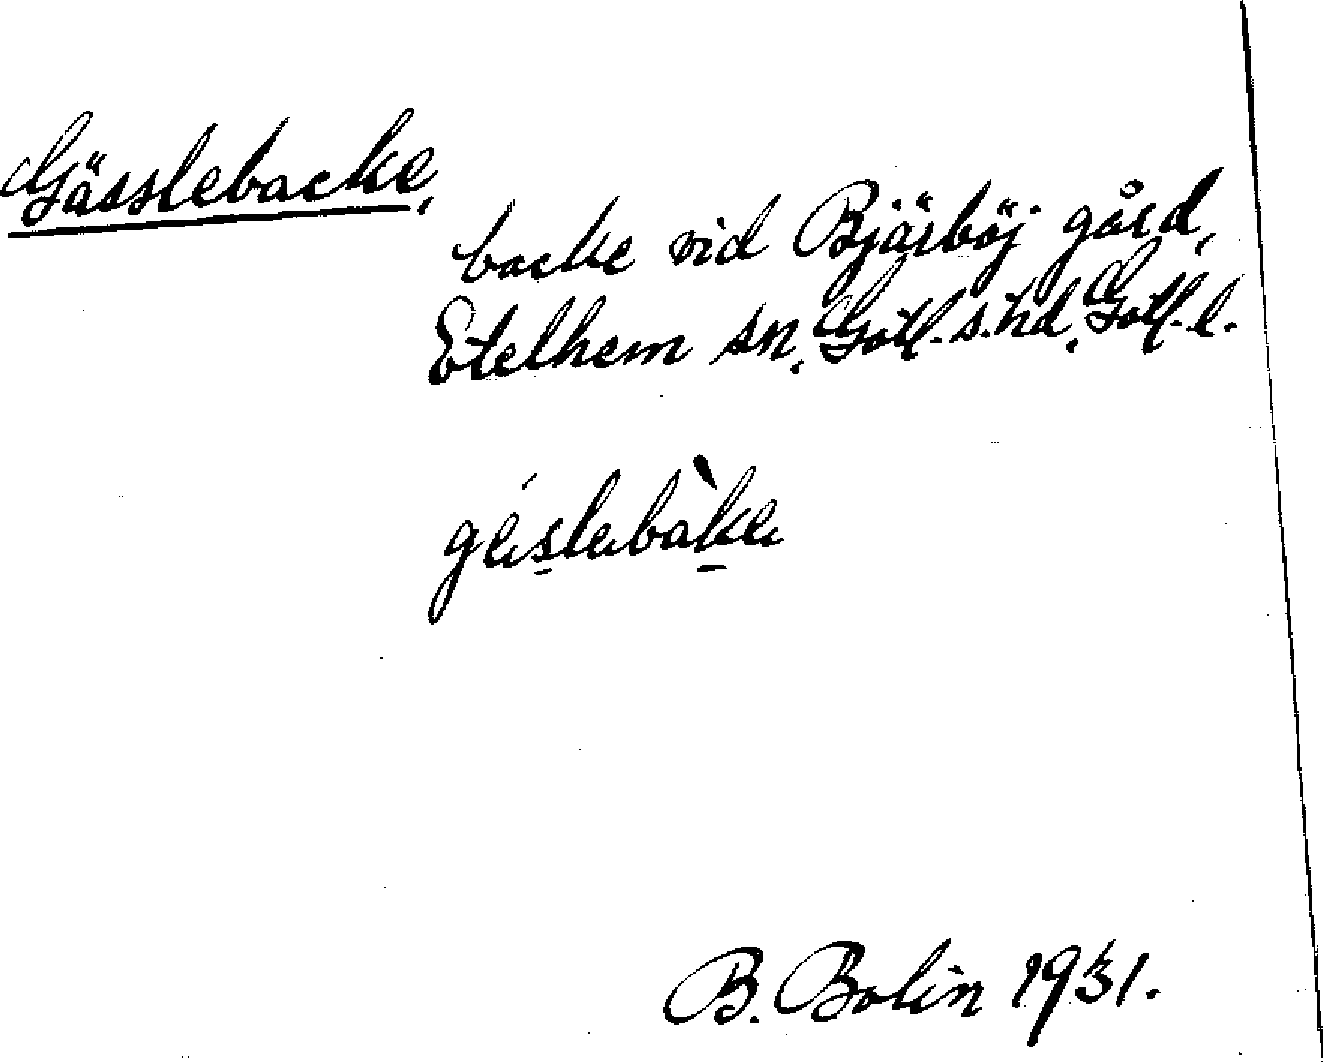 Gässlebacke,
backe vid Bjärböj gård,
Etelhem sn. Gotl. s. hd. Gotl. l.
géslebàke
B. Bolin 1931.